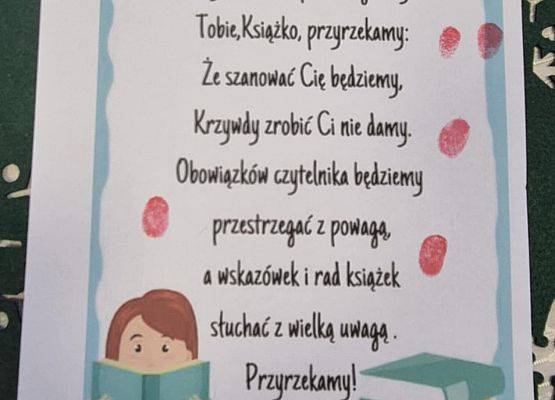 Tobie,Książko, przyrzekamy:
Że szanować Cię będziemy,
Krzywdy zrobić Ci nie damy.
Obowiązków czytelnika będziemy
przestrzegać z powagą,
a wskazówek i rad książek
słuchać z wielką uwagą .
Przyrzekamy!